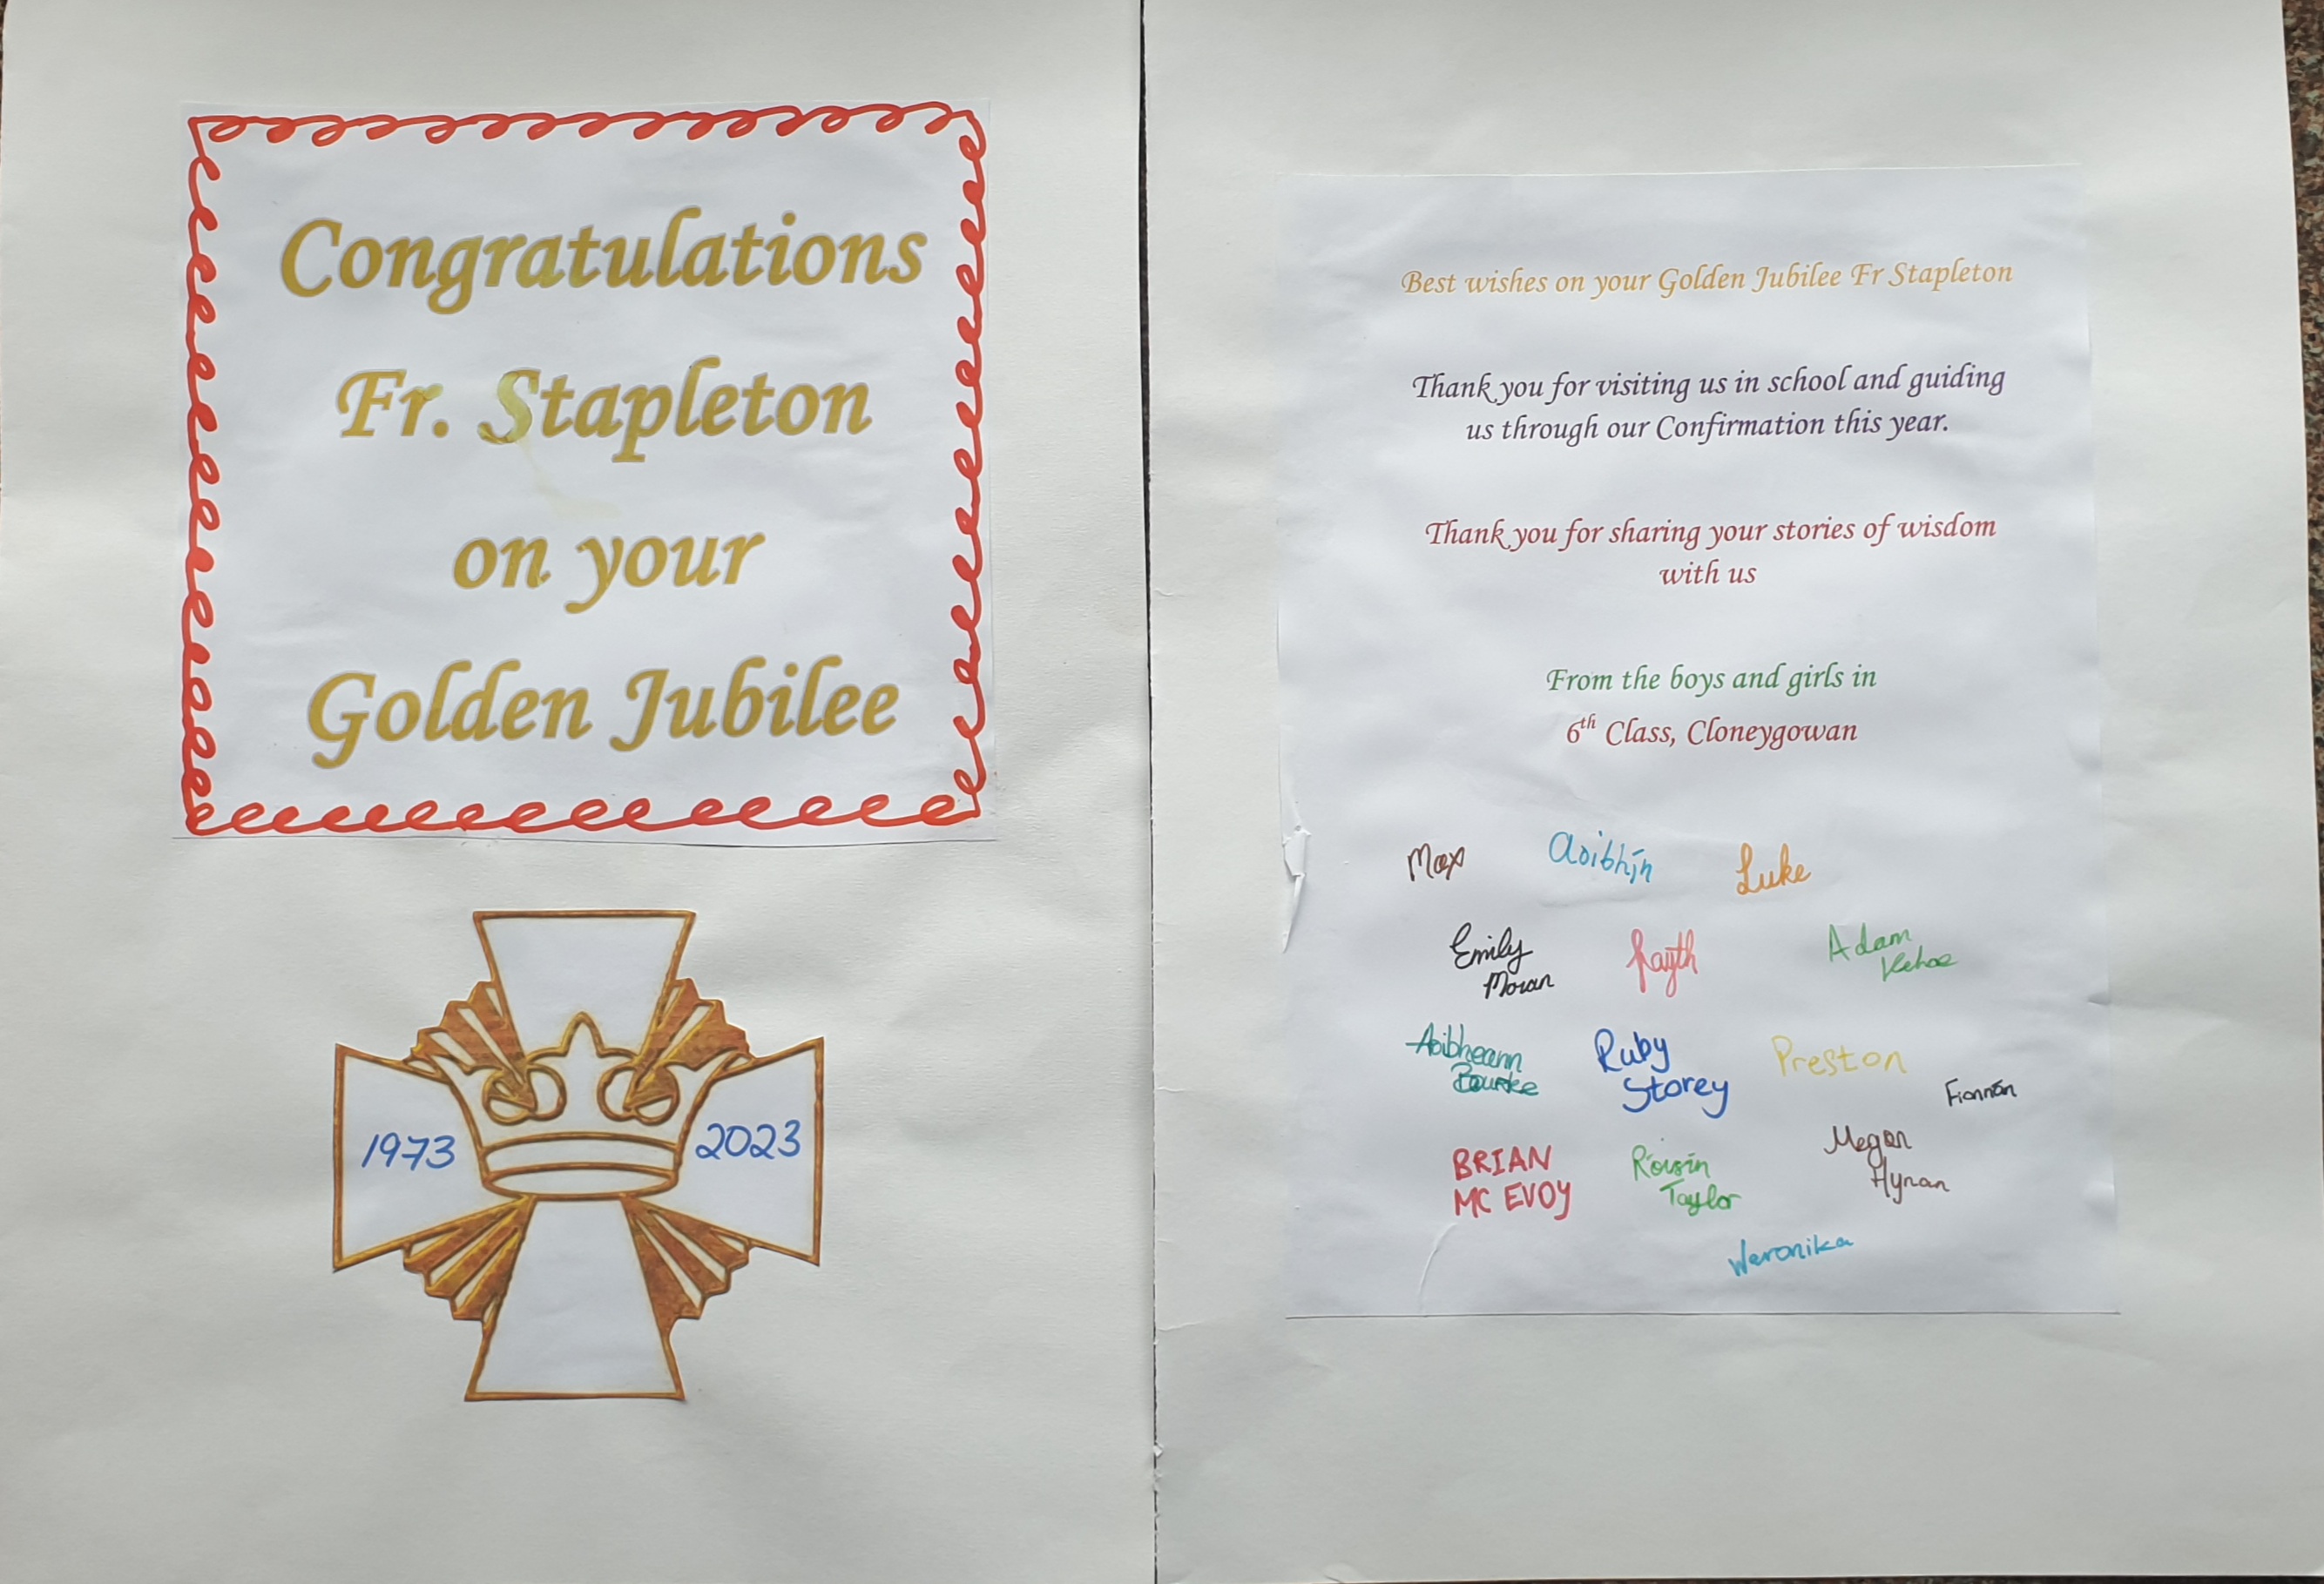 Congratulations
Fr. Stapleton
on your
Golden Jubilee
1973
2023
Best wishes on your Golden Jubilee Fr Stapleton
Thank you for visiting us in school and guiding
us through our Confirmation this year.
Thank you for sharing your stories of wisdom
with us
From the boys and girls in
6th Class, Cloneygowan
Max
Aoibhín
Luke
Emily
Moran
Adam
Kehoe
Aoibheann
Bourke
Ruby
Storey
Preston
Fionnán
BRIAN
MC EVOY
Róisín
Taylor
Megan
Hynan
Weronika